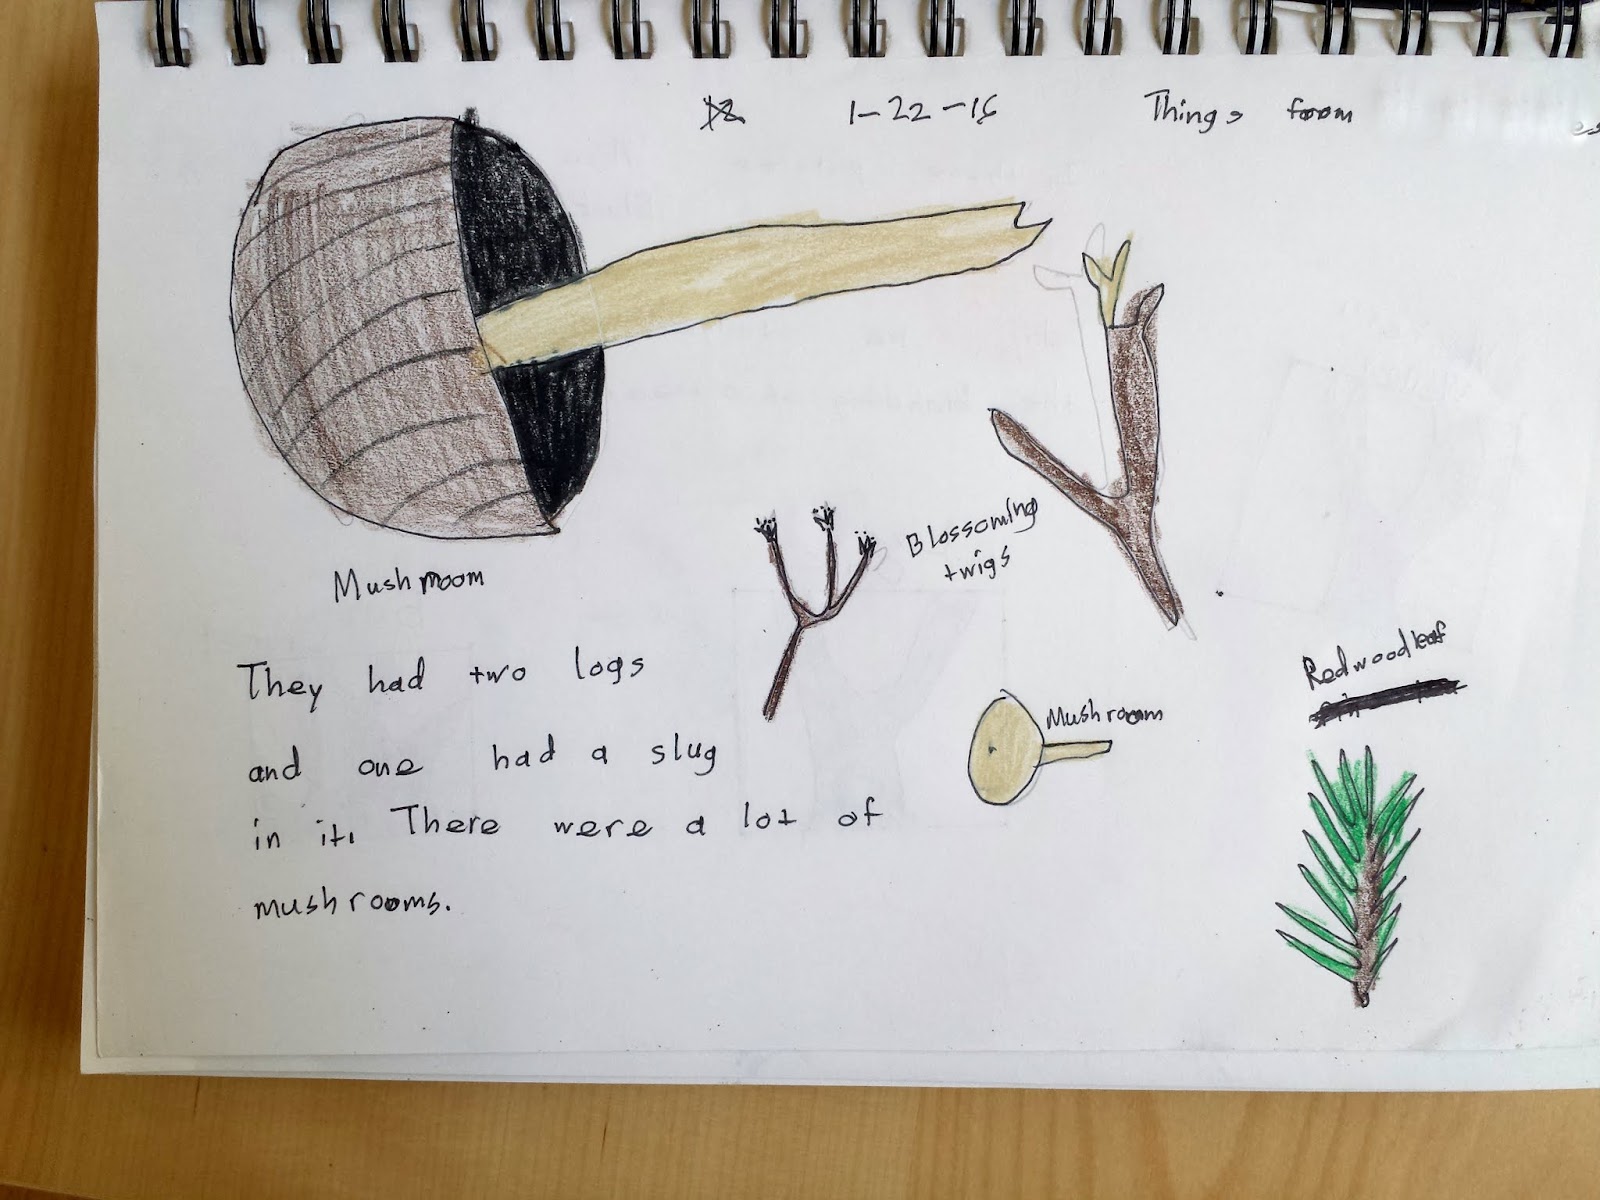 1-22-16 Things from
Mushroom
Blossoming
twigs
They had two logs
and one had a slug
in it. There were a lot of
mushrooms.
Mushroom
Redwood leaf